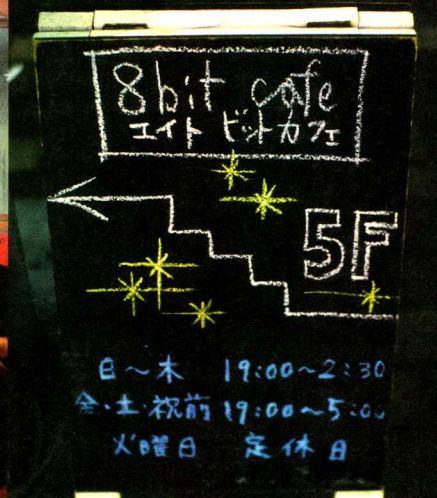 8bit cafe
エイト ビット カフェ
5F
日〜木 19:00〜2:30
金・土・祝前 19:00〜5:00
火曜日 定休日